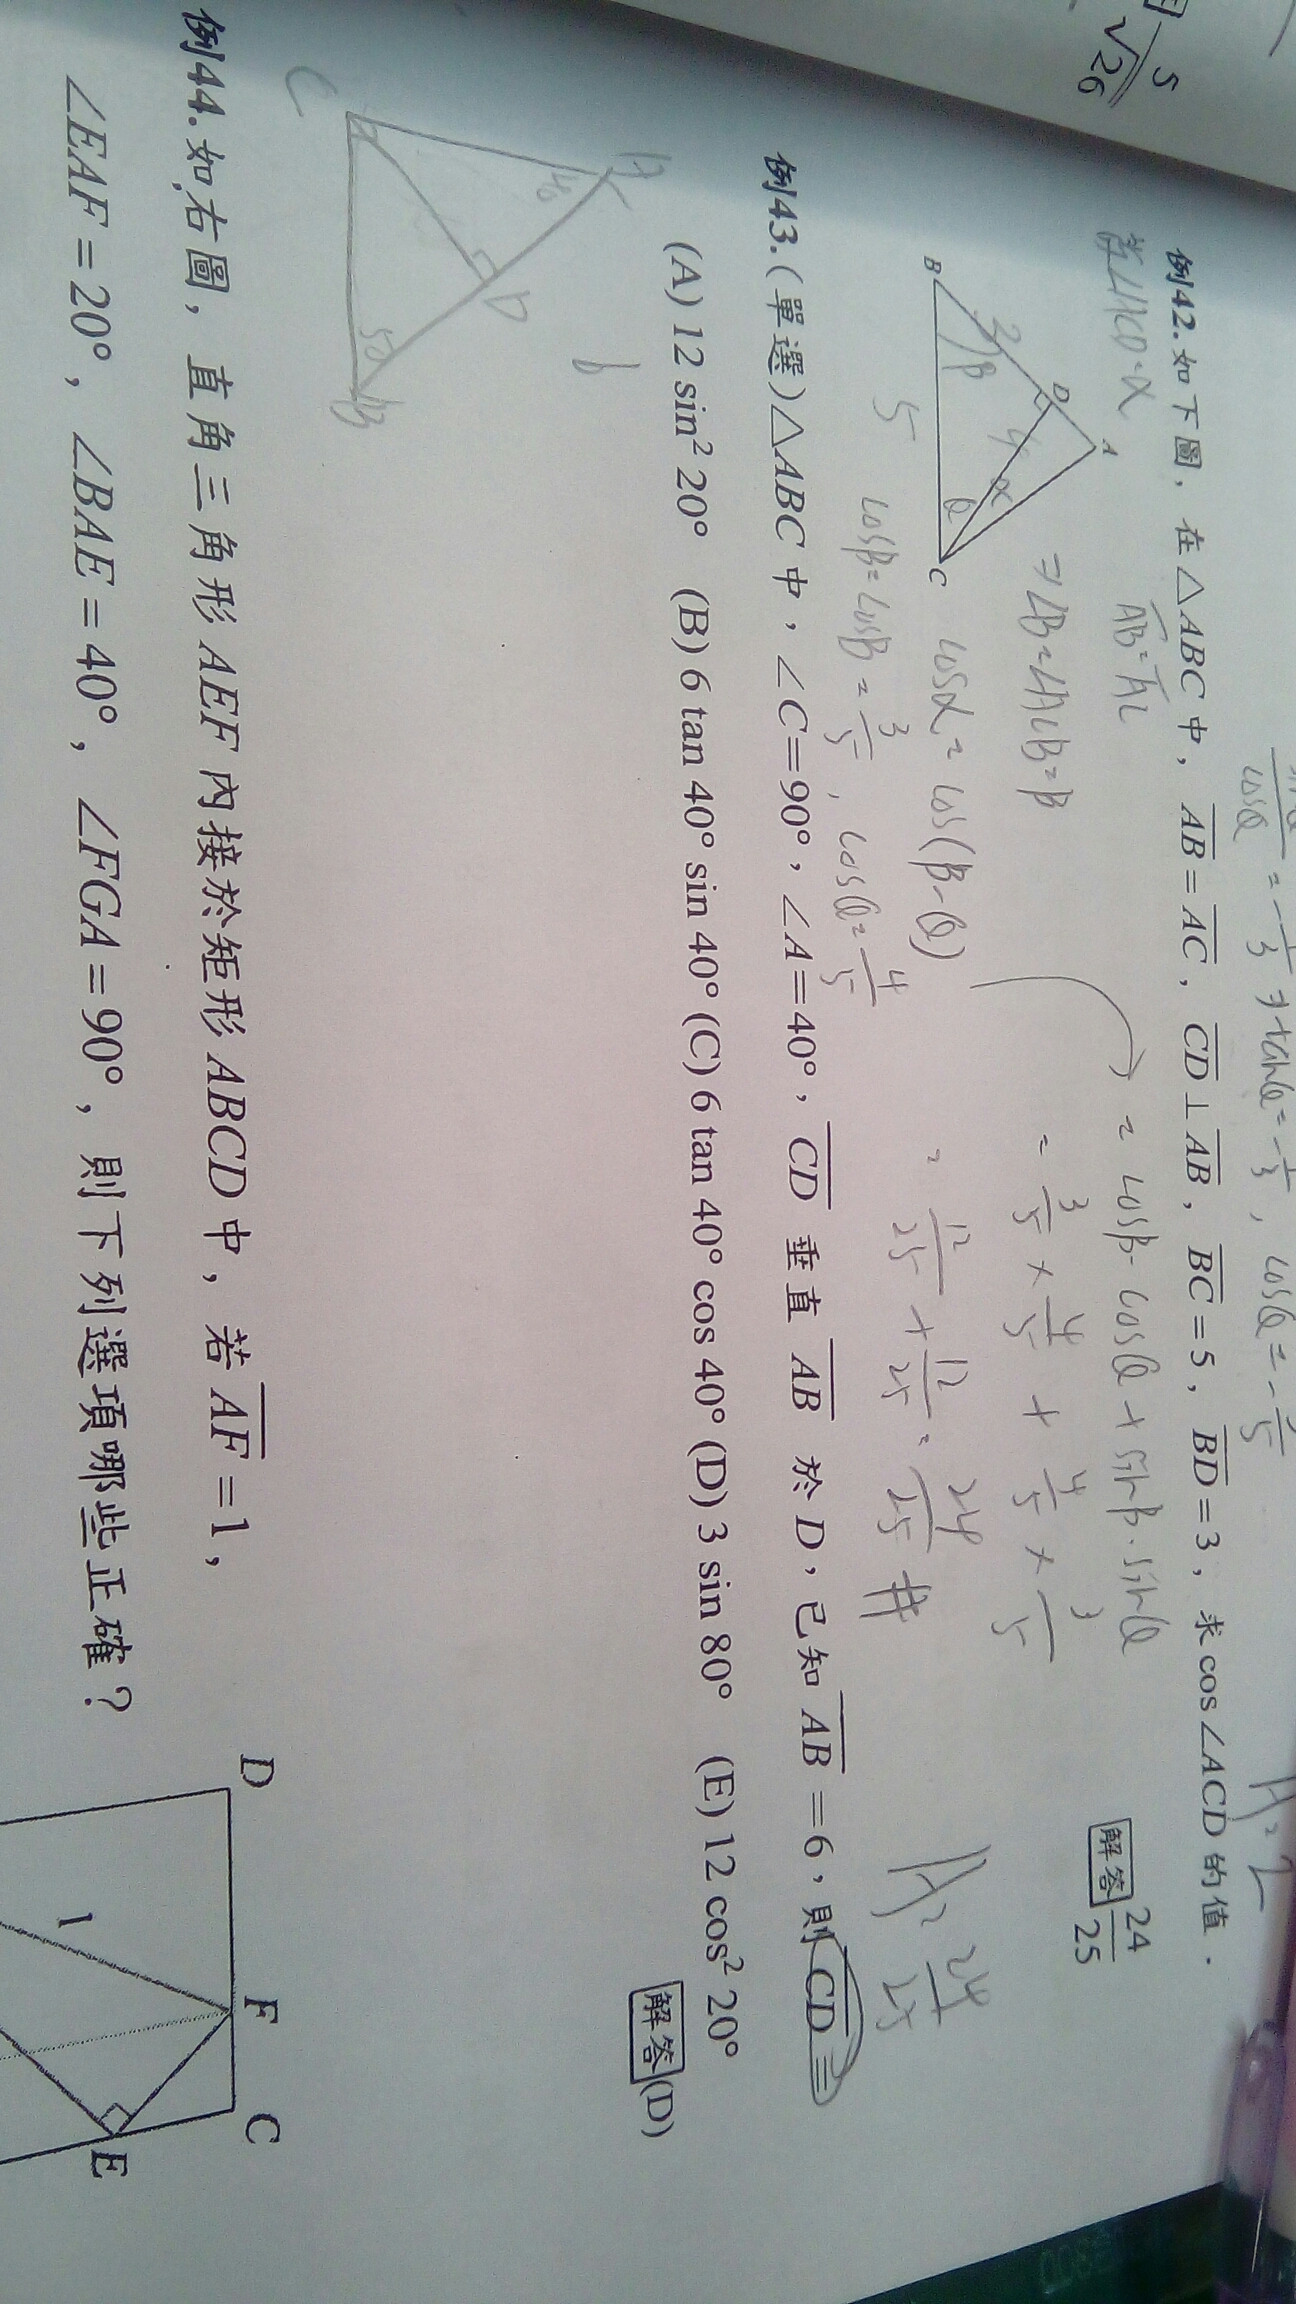 5
√26
cosθ = -1/3 ⇒ tanθ = -1/3 , cosθ = -
例42.如下圖，在△ABC中，AB=AC，CD⊥AB，BC=5，BD=3，求cos∠ACD的值．
解答 24/25
設∠ACD=α AB=AC
⇒∠B=∠ACB=β
cosα=cos(β-θ)
= cosβ·cosθ+sinβ·sinθ
= 3/5 × 4/5 + 4/5 × 3/5
= 12/25 + 12/25 = 24/25 #
cosB=cosβ=3/5 , cosθ=4/5
A: 24/25
A
B
C
D
β
4
α
θ
5
例43.(單選)△ABC中，∠C=90°，∠A=40°，CD 垂直 AB 於D，已知 AB =6，則 CD =
(A) 12 sin² 20° (B) 6 tan 40° sin 40° (C) 6 tan 40° cos 40° (D) 3 sin 80° (E) 12 cos² 20°
解答 (D)
A
D
B
C
40
50
6
例44.如右圖，直角三角形AEF內接於矩形ABCD中，若AF=1，
∠EAF=20°，∠BAE=40°，∠FGA=90°，則下列選項哪些正確？
D
F
C
1
E